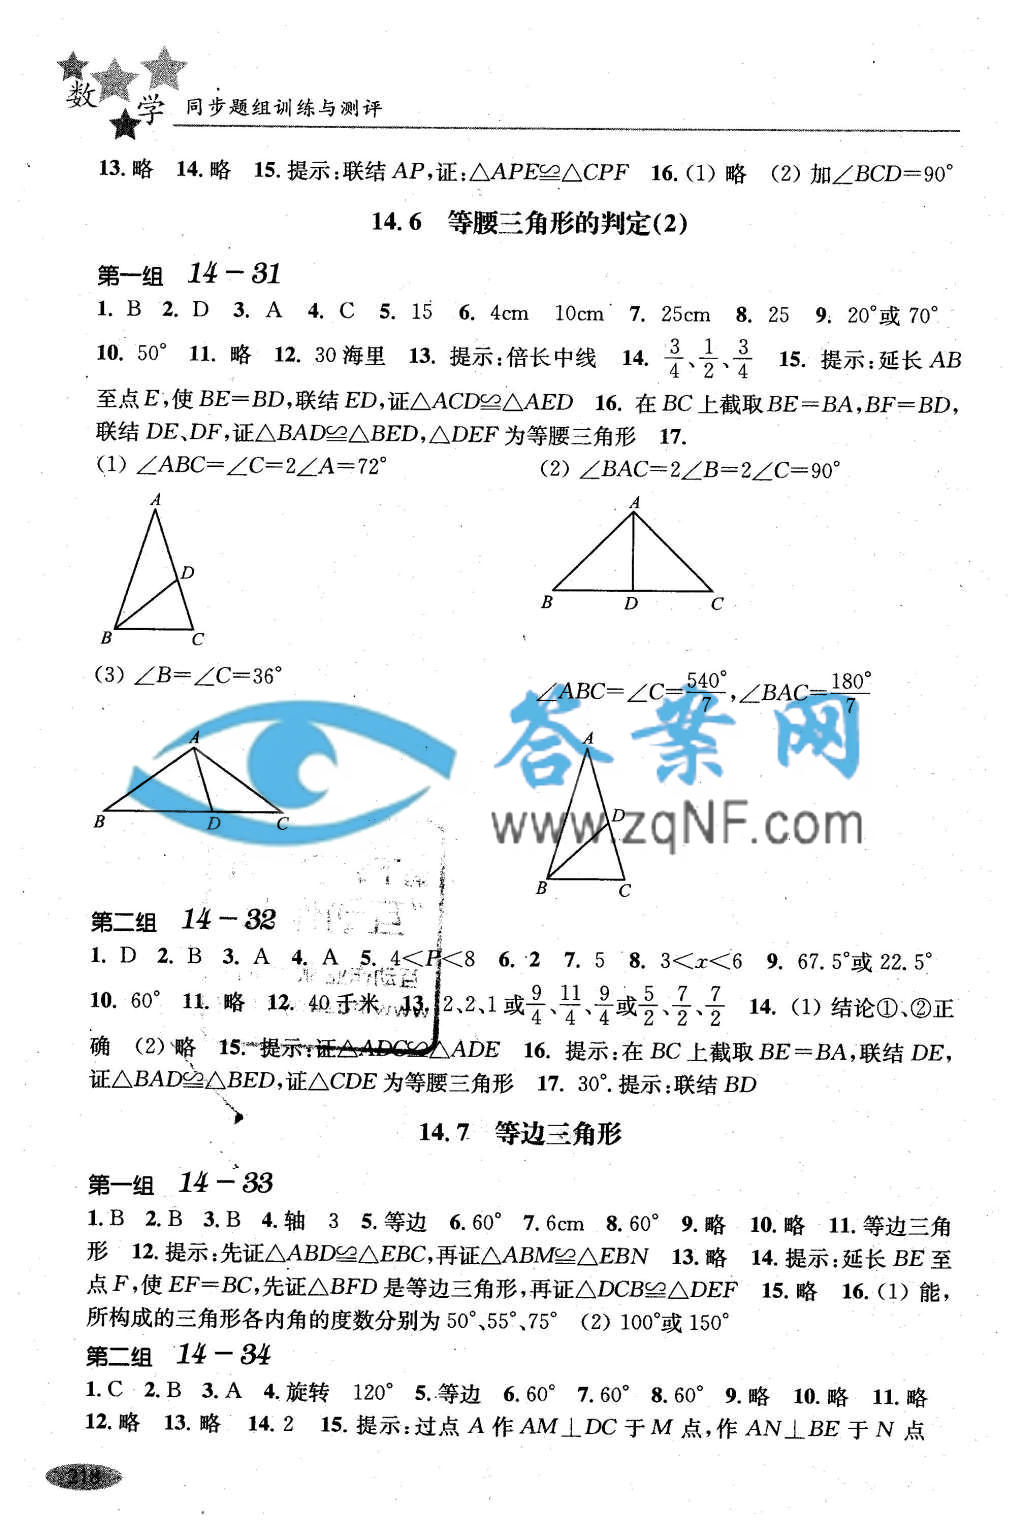 数学
同步题组训练与测评
13. 略 14. 略 15. 提示:联结 AP,证:△APE≌△CPF 16. (1) 略 (2) 加∠BCD=90°
14.6 等腰三角形的判定(2)
第一组 14-31
1. B 2. D 3. A 4. C 5. 15 6. 4cm 10cm 7. 25cm 8. 25 9. 20°或 70°
10. 50° 11. 略 12. 30 海里 13. 提示:倍长中线 14. 3/4、1/2、3/4 15. 提示:延长 AB
至点 E,使 BE=BD,联结 ED,证△ACD≌△AED 16. 在 BC 上截取 BE=BA,BF=BD,
联结 DE、DF,证△BAD≌△BED,△DEF 为等腰三角形 17.
(1) ∠ABC=∠C=2∠A=72° (2) ∠BAC=2∠B=2∠C=90°
A
D
B C
A
B D C
(3) ∠B=∠C=36° ∠ABC=∠C=540°/7,∠BAC=180°/7
答案网
www.zqNF.com
A
B D C
A
D
B C
第二组 14-32
1. D 2. B 3. A 4. A 5. 4<P<8 6. 2 7. 5 8. 3<x<6 9. 67.5°或 22.5°
10. 60° 11. 略 12. 40 千米 13. 2、2、1 或 9/4、11/4、9/4 或 5/2、7/2、7/2 14. (1) 结论①、②正
确 (2) 略 15. 提示:证△ADC≌△ADE 16. 提示:在 BC 上截取 BE=BA,联结 DE,
证△BAD≌△BED,证△CDE 为等腰三角形 17. 30°. 提示:联结 BD
14.7 等边三角形
第一组 14-33
1. B 2. B 3. B 4. 轴 3 5. 等边 6. 60° 7. 6cm 8. 60° 9. 略 10. 略 11. 等边三角
形 12. 提示:先证△ABD≌△EBC,再证△ABM≌△EBN 13. 略 14. 提示:延长 BE 至
点 F,使 EF=BC,先证△BFD 是等边三角形,再证△DCB≌△DEF 15. 略 16. (1) 能,
所构成的三角形各内角的度数分别为 50°、55°、75° (2) 100°或 150°
第二组 14-34
1. C 2. B 3. A 4. 旋转 120° 5. 等边 6. 60° 7. 60° 8. 60° 9. 略 10. 略 11. 略
12. 略 13. 略 14. 2 15. 提示:过点 A 作 AM⊥DC 于 M 点,作 AN⊥BE 于 N 点
218